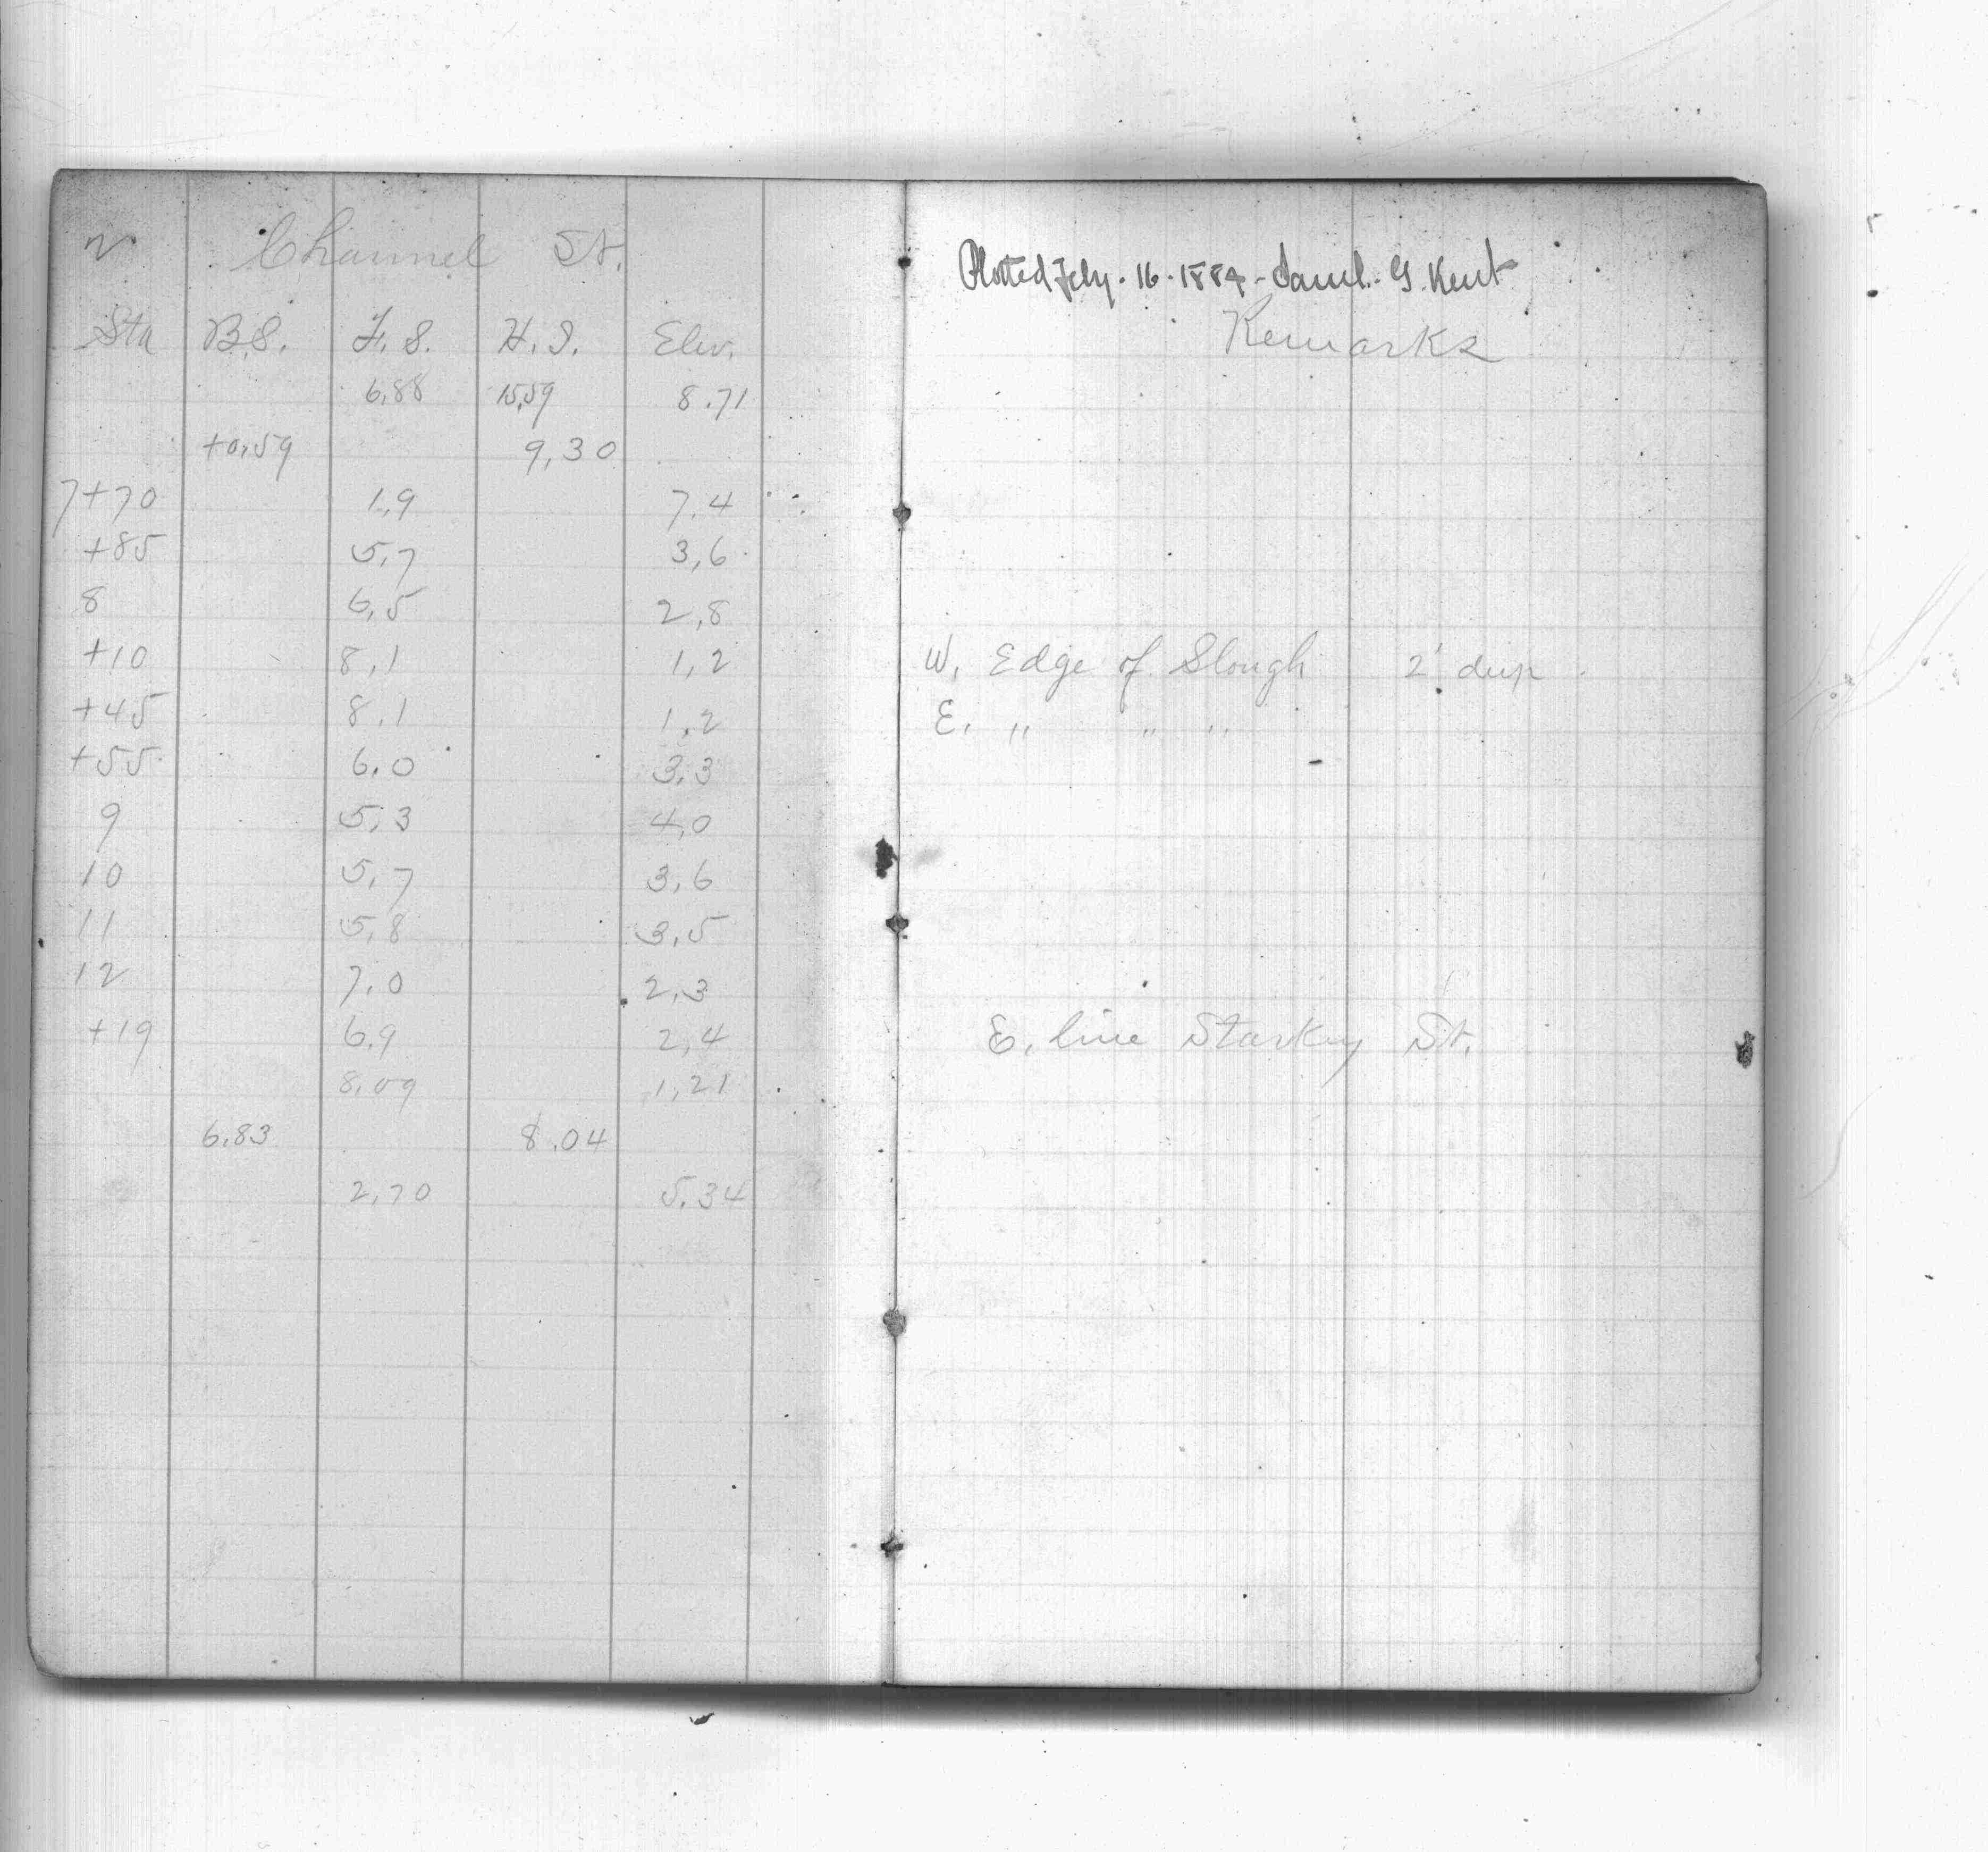 2 Channel St.
Sta B.S. F.S. H.I. Elev.
6.88 15.59 8.71
+0.59 9.30
7+70 1.9 7.4
+85 5.7 3.6
8 6.5 2.8
+10 8.1 1.2
+45 8.1 1.2
+55 6.0 3.3
9 5.3 4.0
10 5.7 3.6
11 5.8 3.5
12 7.0 2.3
+19 6.9 2.4
8.09 1.21
6.83 8.04
2.70 5.34
Plotted July. 16. 1884 - Saml. G. Kent
Remarks
W. Edge of Slough 2' deep
E. " " "
E. line Starkey St.